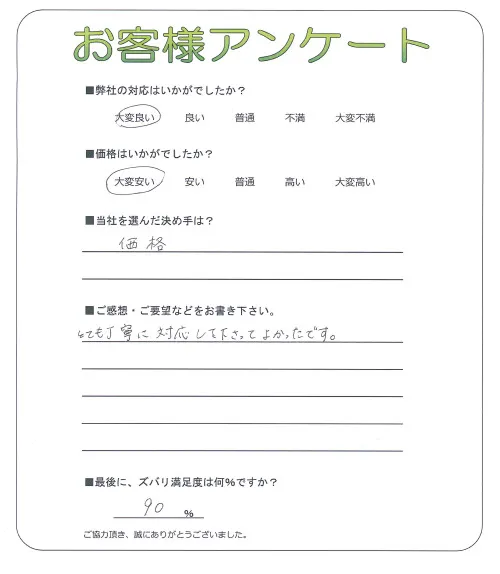 お客様アンケート
■弊社の対応はいかがでしたか？
大変良い 良い 普通 不満 大変不満
■価格はいかがでしたか？
大変安い 安い 普通 高い 大変高い
■当社を選んだ決め手は？
価格
■ご感想・ご要望などをお書き下さい。
とても丁寧に対応して下さってよかったです。
■最後に、ズバリ満足度は何%ですか？
90 %
ご協力頂き、誠にありがとうございました。